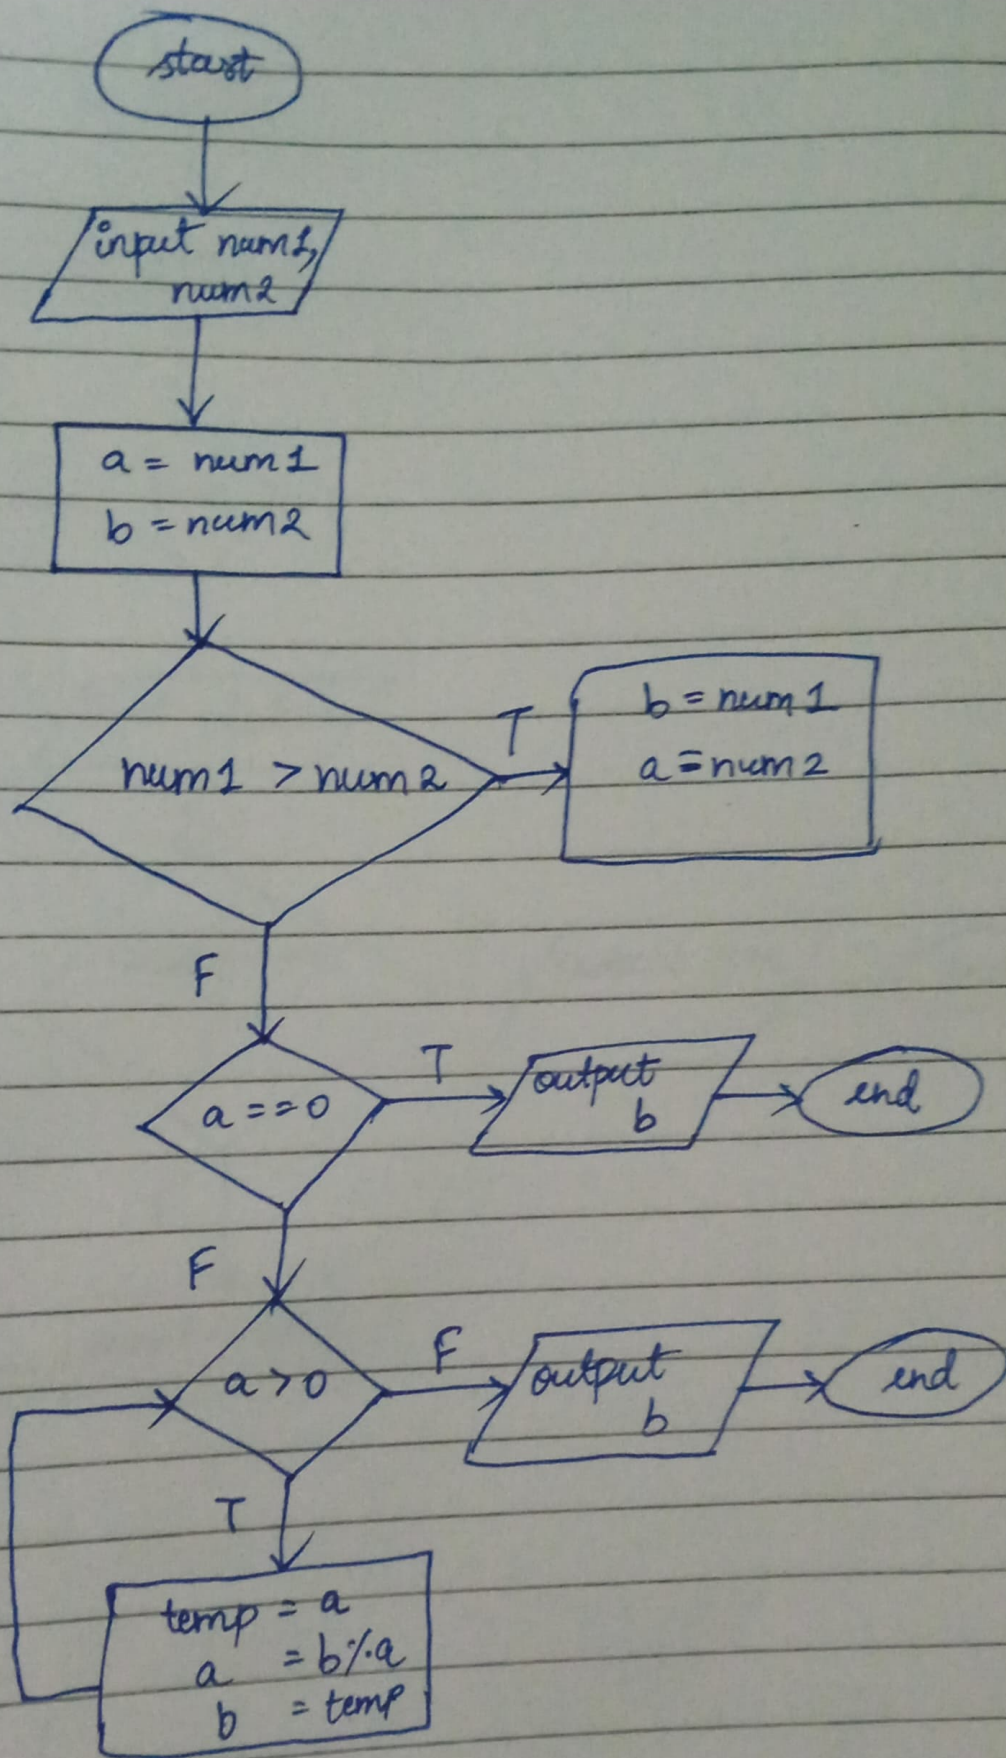 start
input num1,
num2
a = num1
b = num2
num1 > num2
T
b = num1
a = num2
F
a == 0
T
output
b
end
F
a > 0
F
output
b
end
T
temp = a
a = b % a
b = temp